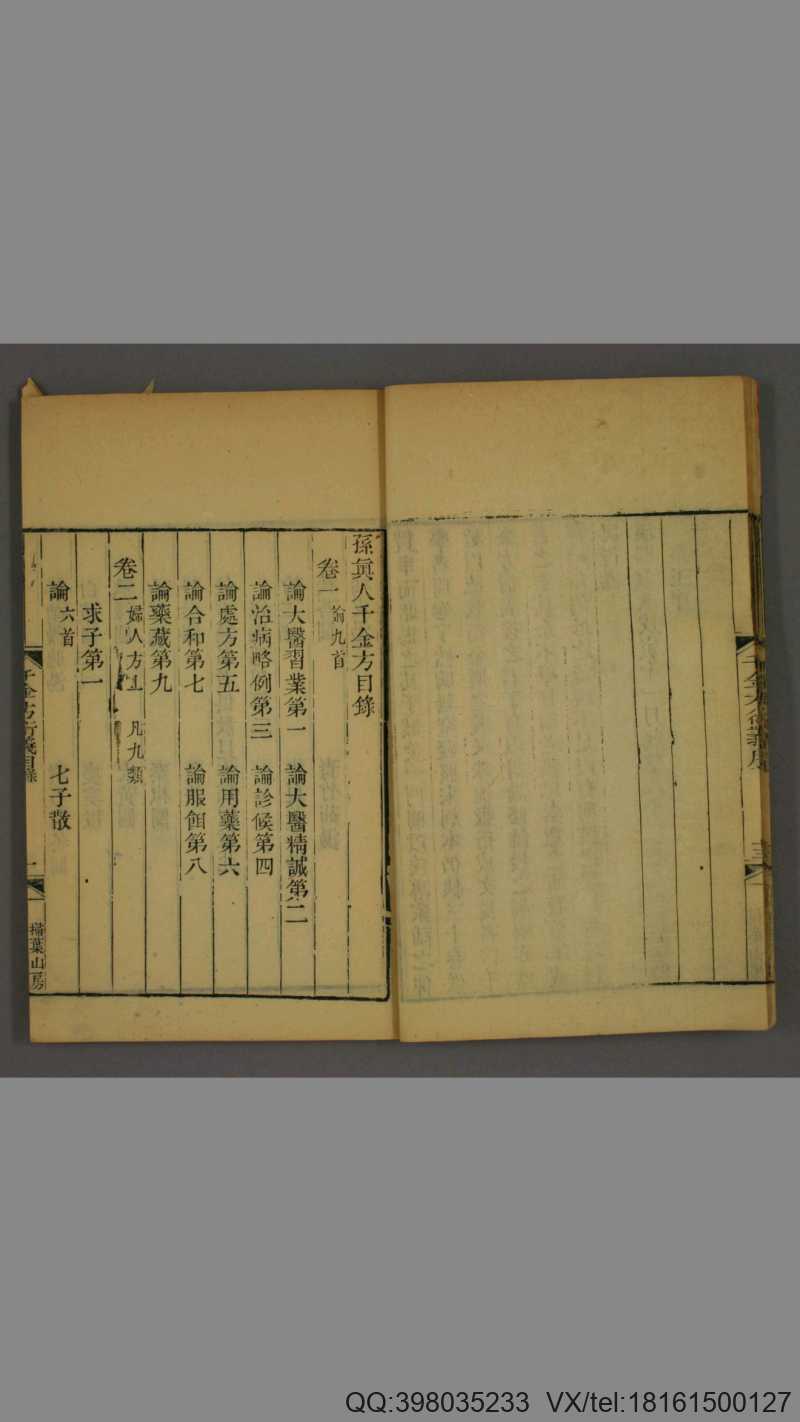 千金方衍義序
三
孫眞人千金方目錄
卷一 論九首
論大醫習業第一 論大醫精誠第二
論治病略例第三 論診候第四
論處方第五 論用藥第六
論合和第七 論服餌第八
論藥藏第九
卷二 婦人方上 凡九類
求子第一
論六首 七子散
千金方衍義目錄
一
掃葉山房
QQ:398035233 VX/tel:18161500127